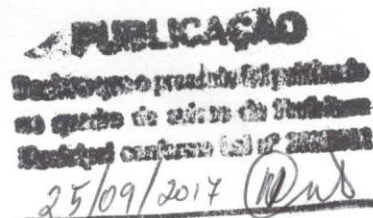 PUBLICAÇÃO
Declaro que o presente foi publicado
no quadro de avisos da Prefeitura
Municipal conforme Lei nº
25/09/2017